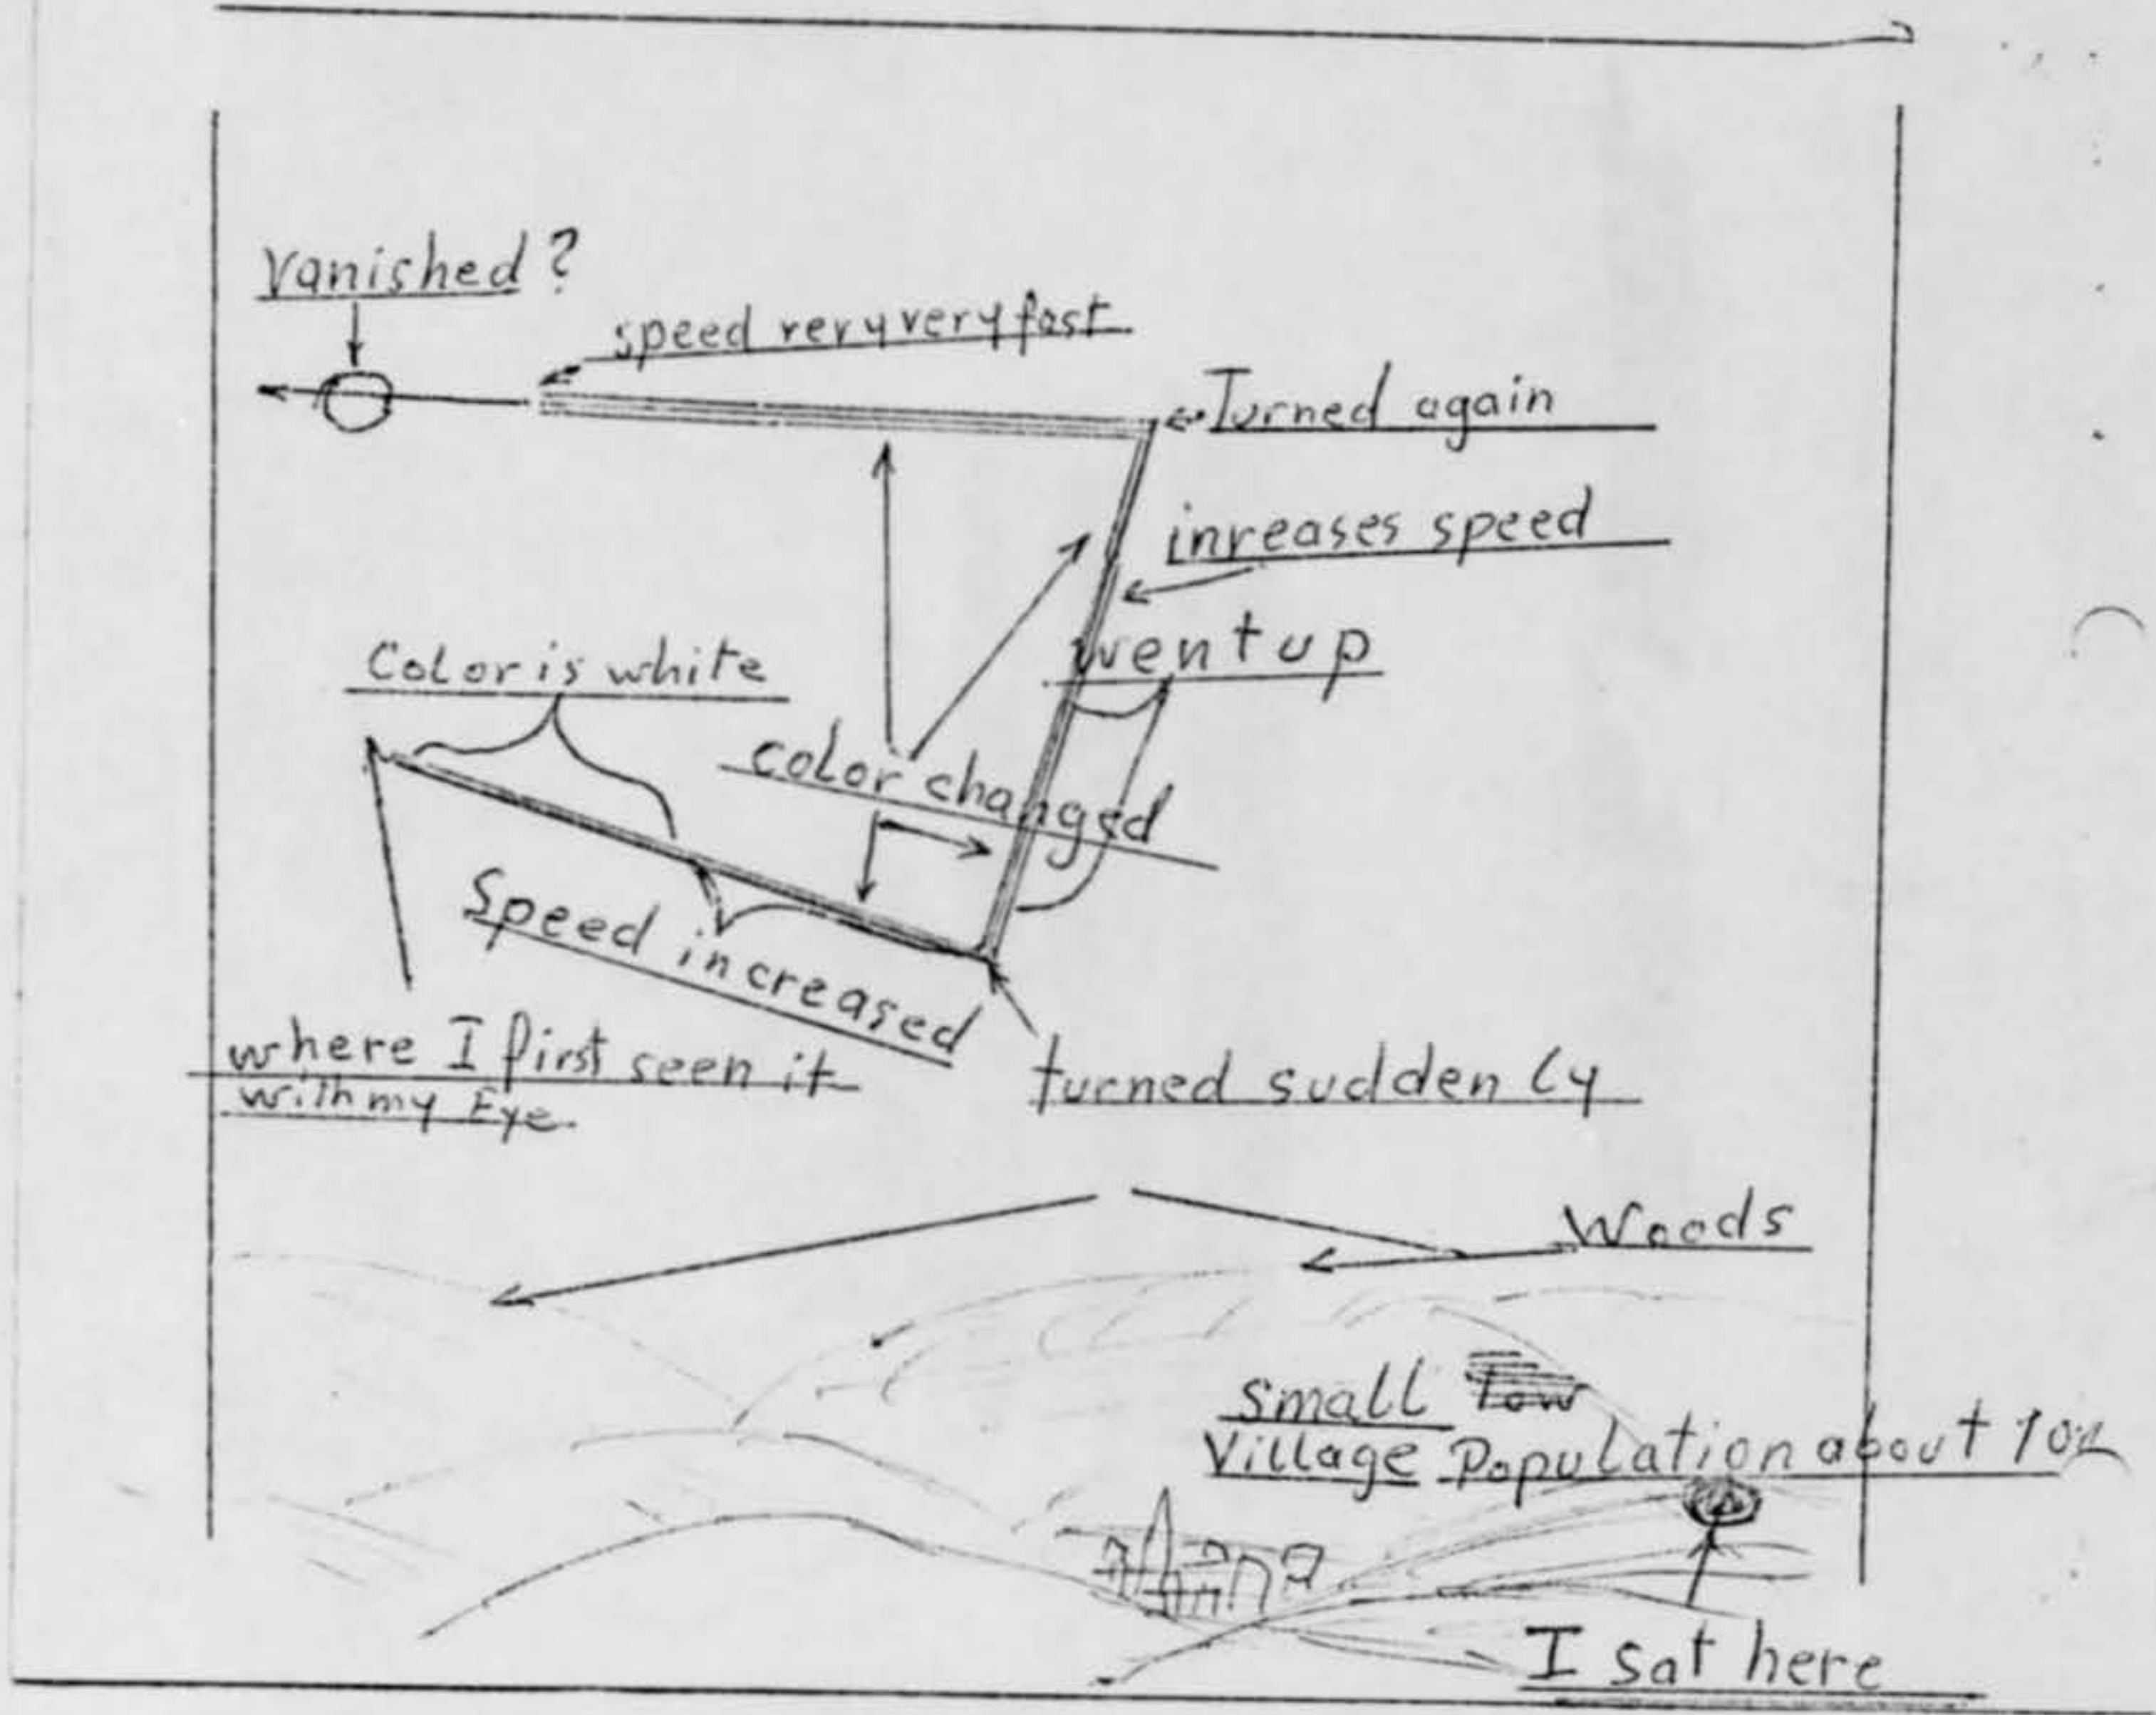 Vanished?
speed very very fast
Turned again
inreases speed
went up
Color is white
color changed
Speed increased
where I first seen it
with my Eye.
turned suddenly
Woods
small Tow
Village Population about
I sat here